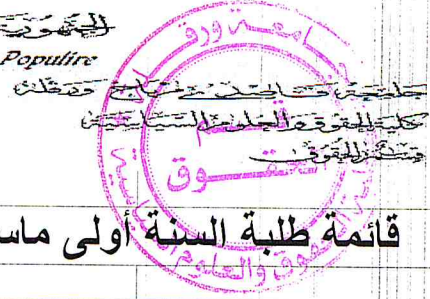 الجمهوريـ
Populire
جامعة قاصدي مرباح ورقلة
كلية الحقوق والعلوم السياسية
قسم الحقوق
قائمة طلبة السنة أولى ماس